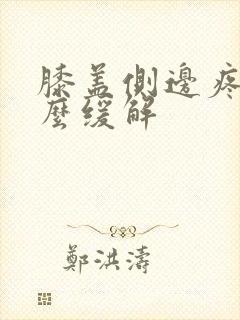 膝盖側邊疼
麼缓解
鄭洪濤